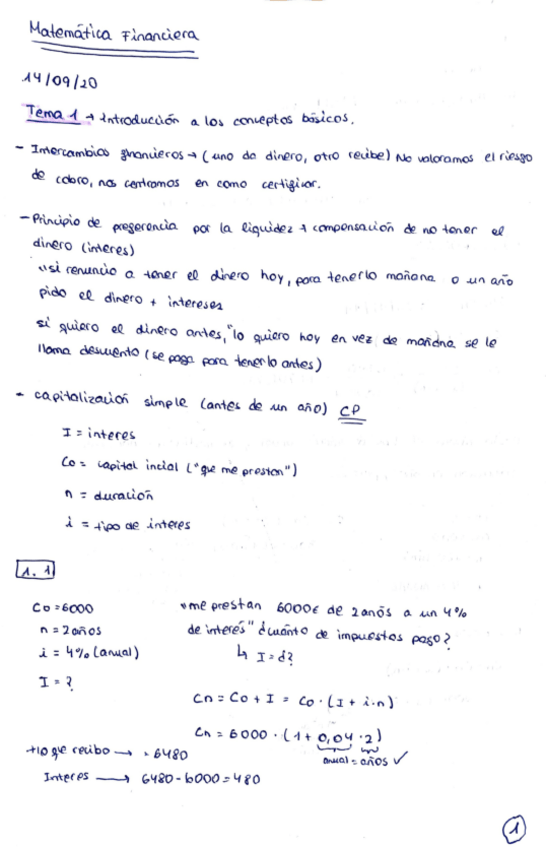 Matemática Financiera
14/09/20
Tema 1 → Introducción a los conceptos básicos.
- Intercambios financieros → (uno da dinero, otro recibe) No valoramos el riesgo
de cobro, nos centramos en como certificar.
- Principio de preferencia por la liquidez → compensación de no tener el
dinero (interes)
"si renuncio a tener el dinero hoy, para tenerlo mañana o un año
pido el dinero + intereses
si quiero el dinero antes, "lo quiero hoy en vez de mañana se le
llama descuento (se paga para tenerlo antes)
- capitalización simple (antes de un año) CP
I = interes
Co = capital incial ("que me prestan")
n = duración
i = tipo de interes
1.1
Co = 6000
n = 2 años
i = 4% (anual)
I = ?
"me prestan 6000€ de 2 años a un 4%
de interés" ¿cuánto de impuestos pago?
↳ I = ¿?
Cn = Co + I = Co · (I + i·n)
Cn = 6000 · (1 + 0,04 · 2)
anual = años ✓
+ lo que recibo → = 6480
Interes → 6480 - 6000 = 480
1